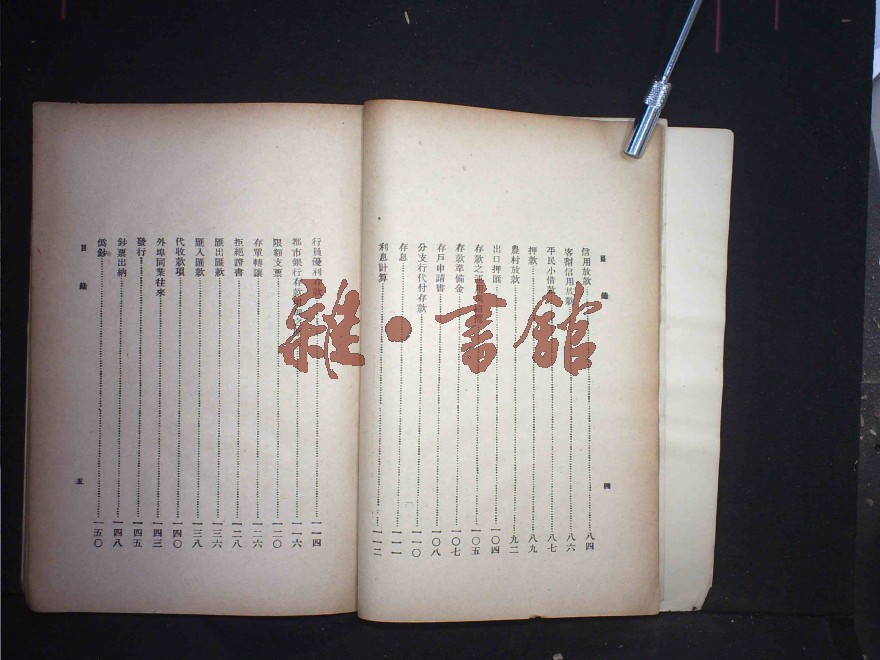 目錄
信用放款 八四
客幫信用放款 八六
平民小借 八七
押款 八九
農村放款 九二
出口押匯 一〇四
存款之運用 一〇五
存款準備金 一〇七
存戶申請書 一〇八
分支行代付存款 一一〇
存息 一一一
利息計算 一一二
四
行員優利存款 一一四
都市銀行存款 一一六
限額支票 一二〇
存單轉讓 一二六
拒絕證書 一二八
匯出匯款 一三六
匯入匯款 一三八
代收款項 一四〇
外埠同業往來 一四三
發行 一四五
鈔票出納 一四八
偽鈔 一五〇
目錄
五
雜·書館